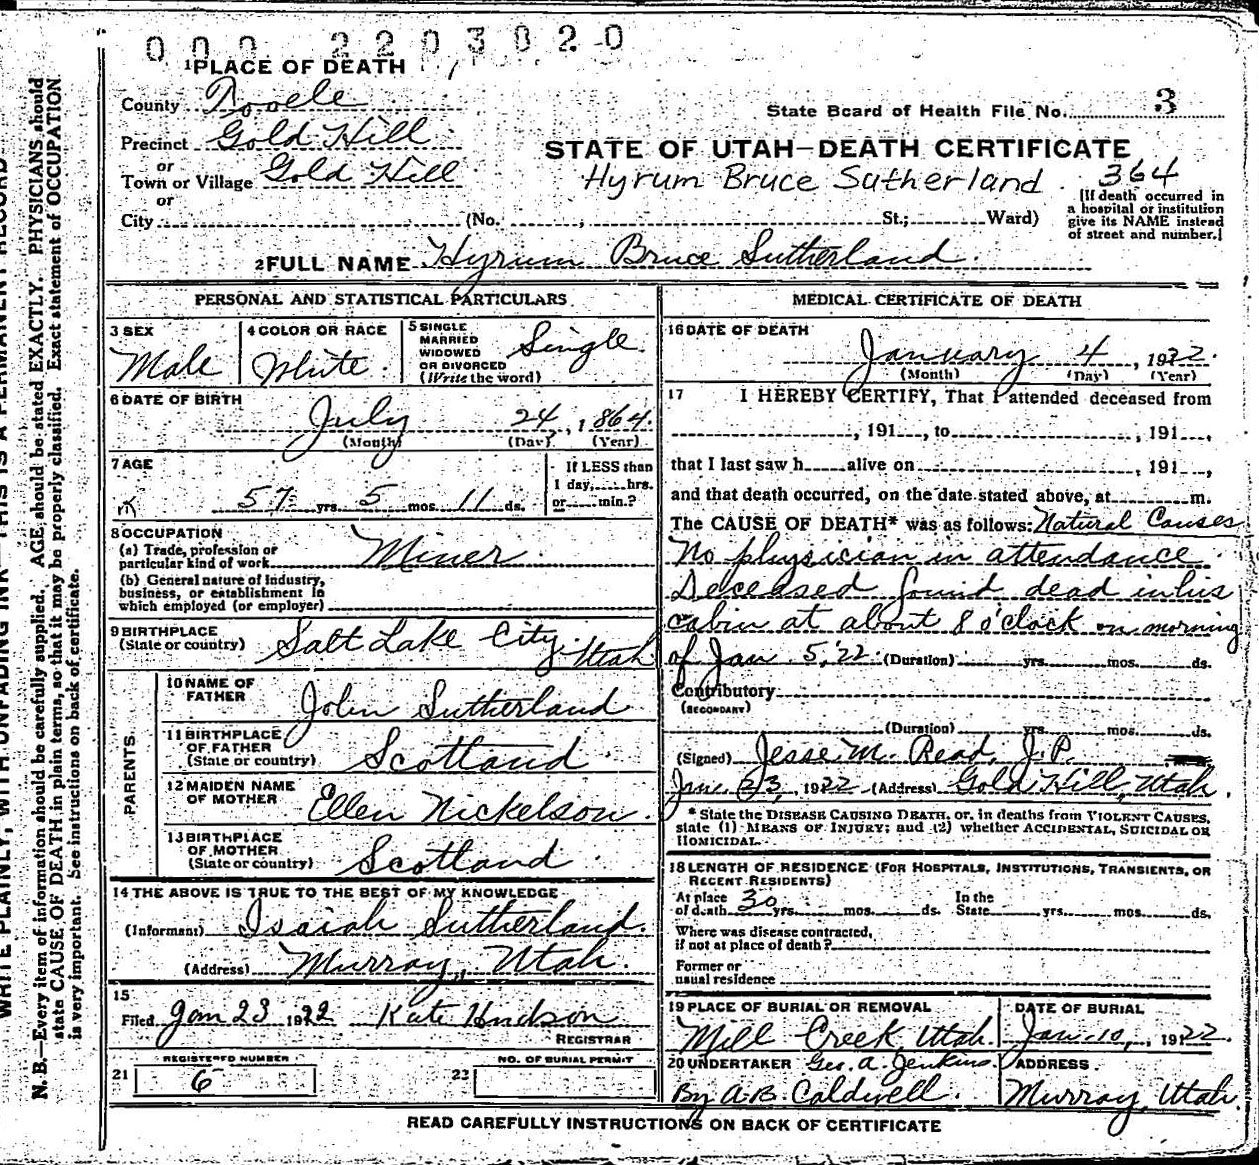 0 0 0 2 2 0 3 0 2 0
1 PLACE OF DEATH
County Tooele
State Board of Health File No. 3
Precinct Gold Hill
or
Town or Village Gold Hill
or
STATE OF UTAH—DEATH CERTIFICATE
Hyrum Bruce Sutherland 364
City (No. , St.; Ward)
[If death occurred in
a hospital or institution
give its NAME instead
of street and number.]
2 FULL NAME Hyrum Bruce Sutherland
PERSONAL AND STATISTICAL PARTICULARS
3 SEX
Male
4 COLOR OR RACE
White.
5 SINGLE
MARRIED
WIDOWED
OR DIVORCED
(Write the word)
Single.
6 DATE OF BIRTH
July 24, 1864.
(Month) (Day) (Year)
7 AGE
57 yrs. 5 mos. 11 ds.
If LESS than
1 day, hrs.
or min.?
8 OCCUPATION
(a) Trade, profession or
particular kind of work Miner.
(b) General nature of Industry,
business, or establishment in
which employed (or employer)
9 BIRTHPLACE
(State or country) Salt Lake City. Utah
PARENTS
10 NAME OF
FATHER John Sutherland
11 BIRTHPLACE
OF FATHER
(State or country) Scotland
12 MAIDEN NAME
OF MOTHER Ellen Nickelson.
13 BIRTHPLACE
OF MOTHER
(State or country) Scotland
14 THE ABOVE IS TRUE TO THE BEST OF MY KNOWLEDGE
(Informant) Isaiah Sutherland.
(Address) Murray, Utah.
15
Filed Jan 23 1922 Kate Hudson
REGISTRAR
REGISTERED NUMBER
21 6
NO. OF BURIAL PERMIT
23
MEDICAL CERTIFICATE OF DEATH
16 DATE OF DEATH
January 4, 1922.
(Month) (Day) (Year)
17 I HEREBY CERTIFY, That I attended deceased from
, 191 , to , 191 ,
that I last saw h alive on , 191 ,
and that death occurred, on the date stated above, at m.
The CAUSE OF DEATH* was as follows: Natural Causes
No physician in attendance.
Deceased found dead in his
cabin at about 8 o'clock on morning
of Jan 5, '22. (Duration) yrs. mos. ds.
Contributory
(SECONDARY)
(Duration) yrs. mos. ds.
(Signed) Jesse M. Read, J.P.
Jan. 23, 1922 (Address) Gold Hill, Utah.
* State the DISEASE CAUSING DEATH, or, in deaths from VIOLENT CAUSES,
state (1) MEANS OF INJURY; and (2) whether ACCIDENTAL, SUICIDAL OR
HOMICIDAL.
18 LENGTH OF RESIDENCE (FOR HOSPITALS, INSTITUTIONS, TRANSIENTS, OR
RECENT RESIDENTS)
At place
of death 30 yrs. mos. ds.
In the
State yrs. mos. ds.
Where was disease contracted,
if not at place of death?
Former or
usual residence
19 PLACE OF BURIAL OR REMOVAL
Mill Creek, Utah.
DATE OF BURIAL
Jan. 10, 1922
20 UNDERTAKER Geo. A. Jenkins.
By A.B. Caldwell.
ADDRESS
Murray, Utah.
READ CAREFULLY INSTRUCTIONS ON BACK OF CERTIFICATE
WRITE PLAINLY, WITH UNFADING INK—THIS IS A PERMANENT RECORD
N. B.—Every item of information should be carefully supplied. AGE should be stated EXACTLY. PHYSICIANS should
state CAUSE OF DEATH in plain terms, so that it may be properly classified. Exact statement of OCCUPATION
is very important. See instructions on back of certificate.